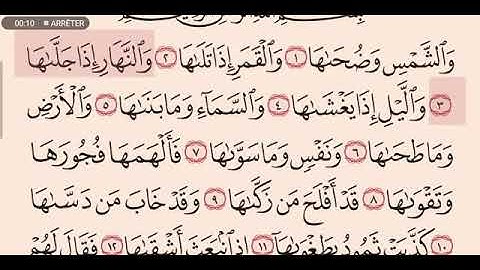 00:10 ■ ARRÊTER
بِسْمِ ٱللَّهِ ٱلرَّحْمَٰنِ ٱلرَّحِيمِ
وَٱلشَّمْسِ وَضُحَىٰهَا ١ وَٱلْقَمَرِ إِذَا تَلَىٰهَا ٢ وَٱلنَّهَارِ إِذَا جَلَّىٰهَا
٣ وَٱلَّيْلِ إِذَا يَغْشَىٰهَا ٤ وَٱلسَّمَآءِ وَمَا بَنَىٰهَا ٥ وَٱلْأَرْضِ
وَمَا طَحَىٰهَا ٦ وَنَفْسٍ وَمَا سَوَّىٰهَا ٧ فَأَلْهَمَهَا فُجُورَهَا
وَتَقْوَىٰهَا ٨ قَدْ أَفْلَحَ مَن زَكَّىٰهَا ٩ وَقَدْ خَابَ مَن دَسَّىٰهَا
١٠ كَذَّبَتْ ثَمُودُ بِطَغْوَىٰهَآ ١١ إِذِ ٱنۢبَعَثَ أَشْقَىٰهَا ١٢ فَقَالَ لَهُمْ